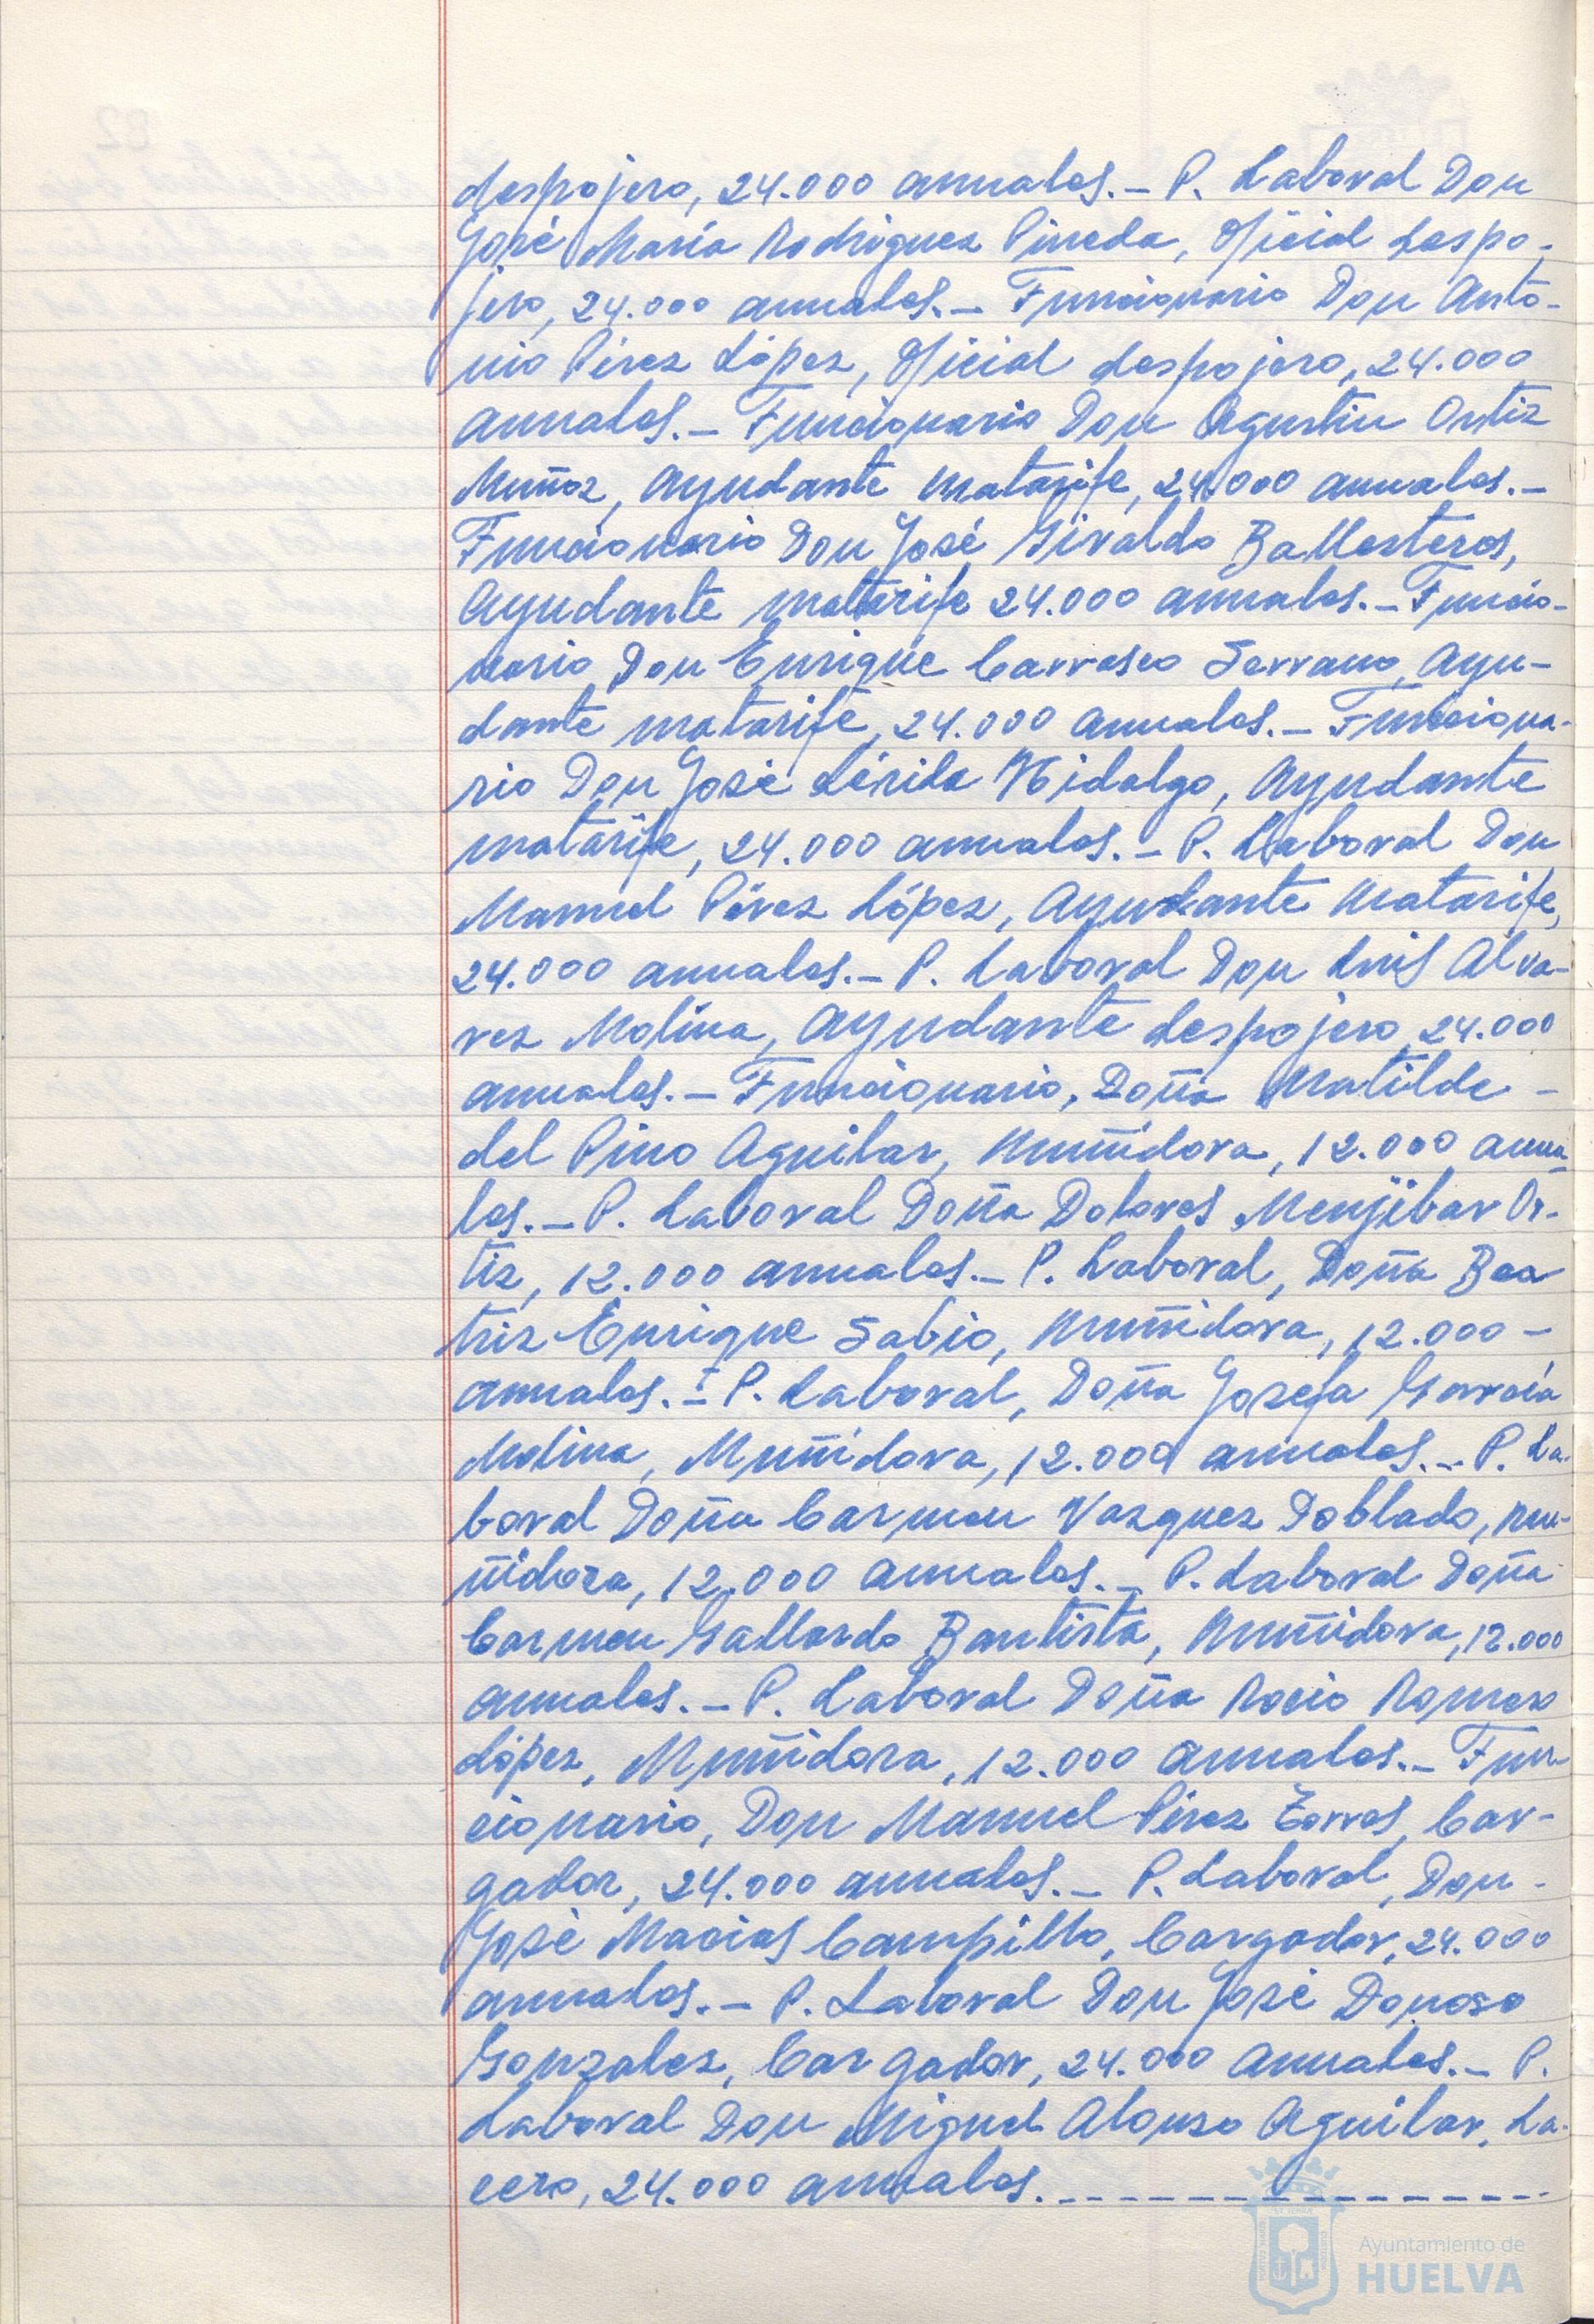 despojero, 24.000 anuales.- P. Laboral Don
José María Rodriguez Pineda, Oficial despo-
jero, 24.000 anuales.- Funcionario Don Anto-
nio Pérez López, Oficial despojero, 24.000
anuales.- Funcionario Don Agustin Ortiz
Muñoz, Ayudante matarife, 24.000 anuales.-
Funcionario Don José Giraldo Ballesteros,
Ayudante matarife 24.000 anuales.- Funcio-
nario Don Enrique Carrasco Serrano, Ayu-
dante matarife, 24.000 anuales.- Funciona-
rio Don José Lérida Hidalgo, Ayudante
matarife, 24.000 anuales.- P. Laboral Don
Manuel Pérez López, Ayudante Matarife,
24.000 anuales.- P. Laboral Don Luis Alva-
rez Molina, Ayudante despojero, 24.000
anuales.- Funcionario, Doña Matilde -
del Pino Aguilar, Muñidora, 12.000 anua
les.- P. Laboral Doña Dolores Menjibar Or-
tiz, 12.000 anuales.- P. Laboral, Doña Bea
triz Enrique Sabio, Muñidora, 12.000 -
anuales.- P. Laboral, Doña Josefa García
Molina, Muñidora, 12.000 anuales.- P. La-
boral Doña Carmen Vazquez Doblado, Mu-
ñidora, 12.000 anuales.- P. Laboral Doña
Carmen Gallardo Bautista, Muñidora, 12.000
anuales.- P. Laboral Doña Rocio Romero
López, Muñidora, 12.000 anuales.- Fun-
cionario, Don Manuel Pérez Torres, Car-
gador, 24.000 anuales.- P. Laboral, Don -
José Macias Campillo, Cargador, 24.000
anuales.- P. Laboral Don José Donoso
Gonzalez, Cargador, 24.000 anuales.- P.
Laboral Don Miguel Alonso Aguilar, La-
cero, 24.000 anuales.- - - - - - - - - - - - -
Ayuntamiento de
HUELVA